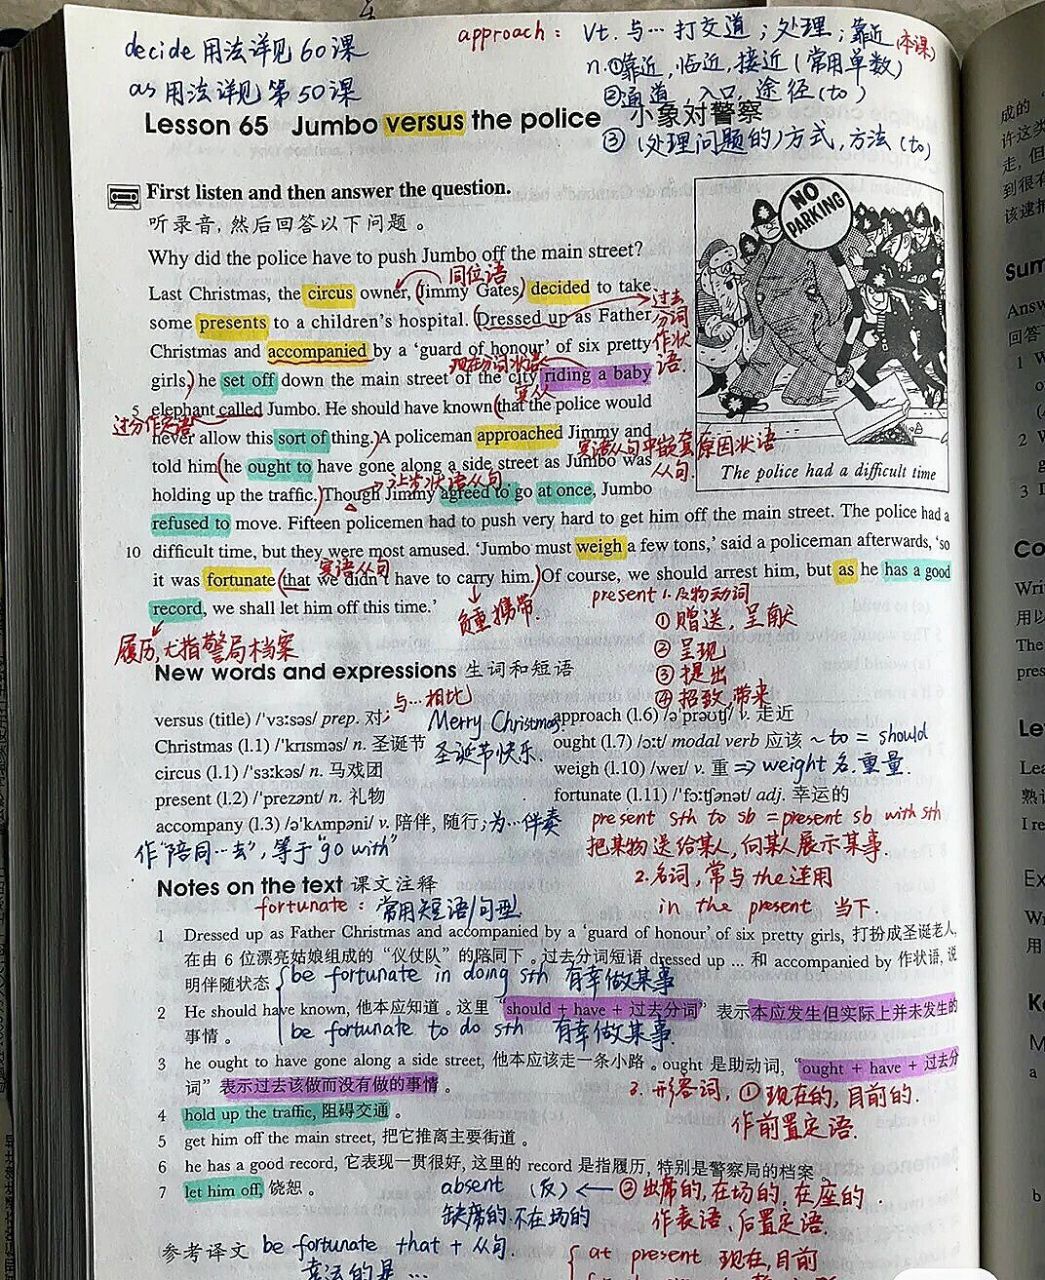 decide 用法详见60课
as 用法详见第50课
approach: vt. 与…打交道;处理;靠近(本课)
n.①靠近,临近,接近(常用单数)
②通道,入口,途径(to)
③(处理问题的)方式,方法(to)
Lesson 65 Jumbo versus the police 小象对警察
First listen and then answer the question.
听录音,然后回答以下问题。
Why did the police have to push Jumbo off the main street?
同位语
Last Christmas, the circus owner, (Jimmy Gates) decided to take
some presents to a children's hospital. (Dressed up as Father
Christmas and accompanied by a 'guard of honour' of six pretty
过去分词作状语
现在分词状语
girls,) he set off down the main street of the city riding a baby
宾从
5 elephant called Jumbo. He should have known (that the police would
过分作定语
never allow this sort of thing.) A policeman approached Jimmy and
宾语从句中嵌套原因状语从句.
told him (he ought to have gone along a side street as Jumbo was
让步状语从句
holding up the traffic.) Though Jimmy agreed to go at once, Jumbo
NO PARKING
The police had a difficult time
refused to move. Fifteen policemen had to push very hard to get him off the main street. The police had a
10 difficult time, but they were most amused. 'Jumbo must weigh a few tons,' said a policeman afterwards, 'so
宾语从句
it was fortunate (that we didn't have to carry him.) Of course, we should arrest him, but as he has a good
record, we shall let him off this time.'
负重,携带.
履历,尤指警局档案
present 1.及物动词
①赠送,呈献
②呈现
③提出
④招致,带来
New words and expressions 生词和短语
versus (title) /'vɜːsəs/ prep. 对;与…相比
Christmas (l.1) /'krɪsməs/ n. 圣诞节
Merry Christmas.
圣诞节快乐.
circus (l.1) /'sɜːkəs/ n. 马戏团
present (l.2) /'prezənt/ n. 礼物
accompany (l.3) /ə'kʌmpəni/ v. 陪伴, 随行;为…伴奏
作"陪同…去",等于"go with"
approach (l.6) /ə'prəʊtʃ/ v. 走近
ought (l.7) /ɔːt/ modal verb 应该 ~ to = should
weigh (l.10) /weɪ/ v. 重 ⇒ weight 名.重量.
fortunate (l.11) /'fɔːtʃənət/ adj. 幸运的
present sth to sb = present sb with sth
把某物送给某人,向某人展示某事
2.名词,常与the连用
in the present 当下.
Notes on the text 课文注释
fortunate: 常用短语/句型
1 Dressed up as Father Christmas and accompanied by a 'guard of honour' of six pretty girls, 打扮成圣诞老人,
在由 6 位漂亮姑娘组成的 "仪仗队" 的陪同下。过去分词短语 dressed up ... 和 accompanied by 作状语, 说
明伴随状态
be fortunate in doing sth 有幸做某事
2 He should have known, 他本应知道。这里 "should + have + 过去分词" 表示本应发生但实际上并未发生的
事情。
be fortunate to do sth 有幸做某事.
3 he ought to have gone along a side street, 他本应该走一条小路。ought 是助动词, "ought + have + 过去分
词" 表示过去该做而没有做的事情。
3.形容词,①现在的,目前的.
作前置定语.
4 hold up the traffic, 阻碍交通。
5 get him off the main street, 把它推离主要街道。
6 he has a good record, 它表现一贯很好, 这里的 record 是指履历, 特别是警察局的档案。
7 let him off, 饶恕。
absent (反) ← ②出席的,在场的,在座的.
缺席的,不在场的
作表语,后置定语.
参考译文
be fortunate that + 从句.
幸运的是…
at present 现在,目前